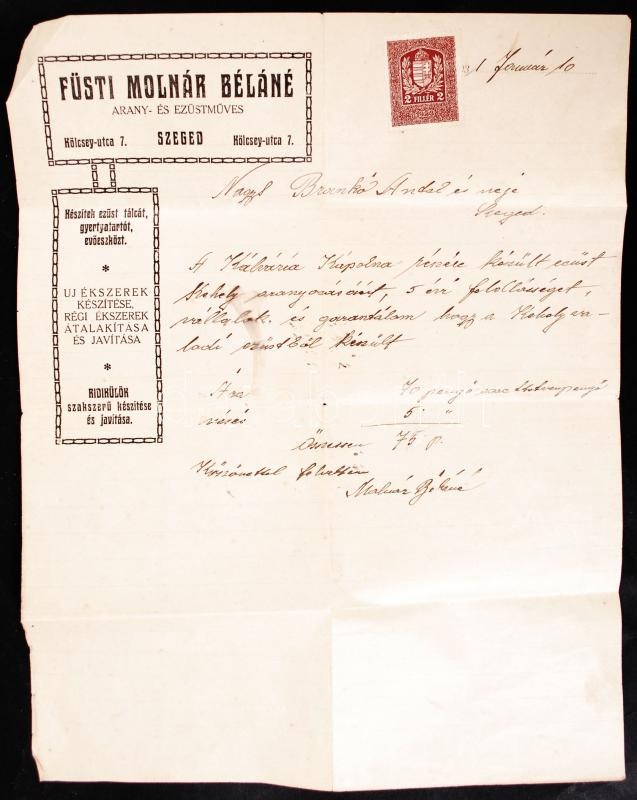 FÜSTI MOLNÁR BÉLÁNÉ
ARANY- ÉS EZÜSTMŰVES
Kölcsey-utca 7. SZEGED Kölcsey-utca 7.
2 FILLÉR 2
1 Január 10
Készítek ezüst tálcát,
gyertyatartót,
evőeszközt.
*
UJ ÉKSZEREK
KÉSZÍTÉSE,
RÉGI ÉKSZEREK
ÁTALAKÍTÁSA
ÉS JAVÍTÁSA
*
RIDIKÜLÖK
szakszerű készítése
és javítása.
Nagys Brankó Antal és neje
Szeged.
A Kálvária Kápolna részére készült ezüst
Kehely aranyozásáért, 5 évi felelősséget,
vállalok és garantálom hogy a Kehely va-
lódi ezüstből készült
Ára 70 pengő azaz Hetvenpengő
vésés 5 "
Összesen 75 p.
Köszönettel felvettem
Molnár Béláné